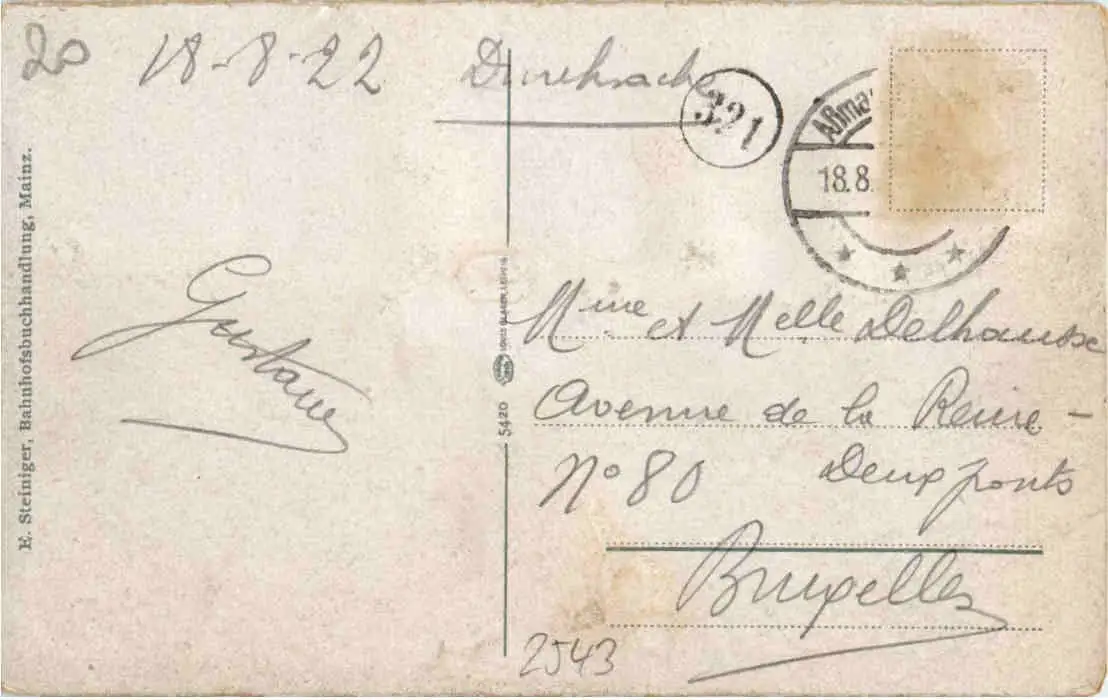 20 18-8-22 Drucksache
321
Aßma
18.8.
E. Steiniger, Bahnhofsbuchhandlung, Mainz.
Gustave
5420
Mme et Melle Delhausse
Avenue de la Reine -
N° 80 Deux ponts
Bruxelles
2543